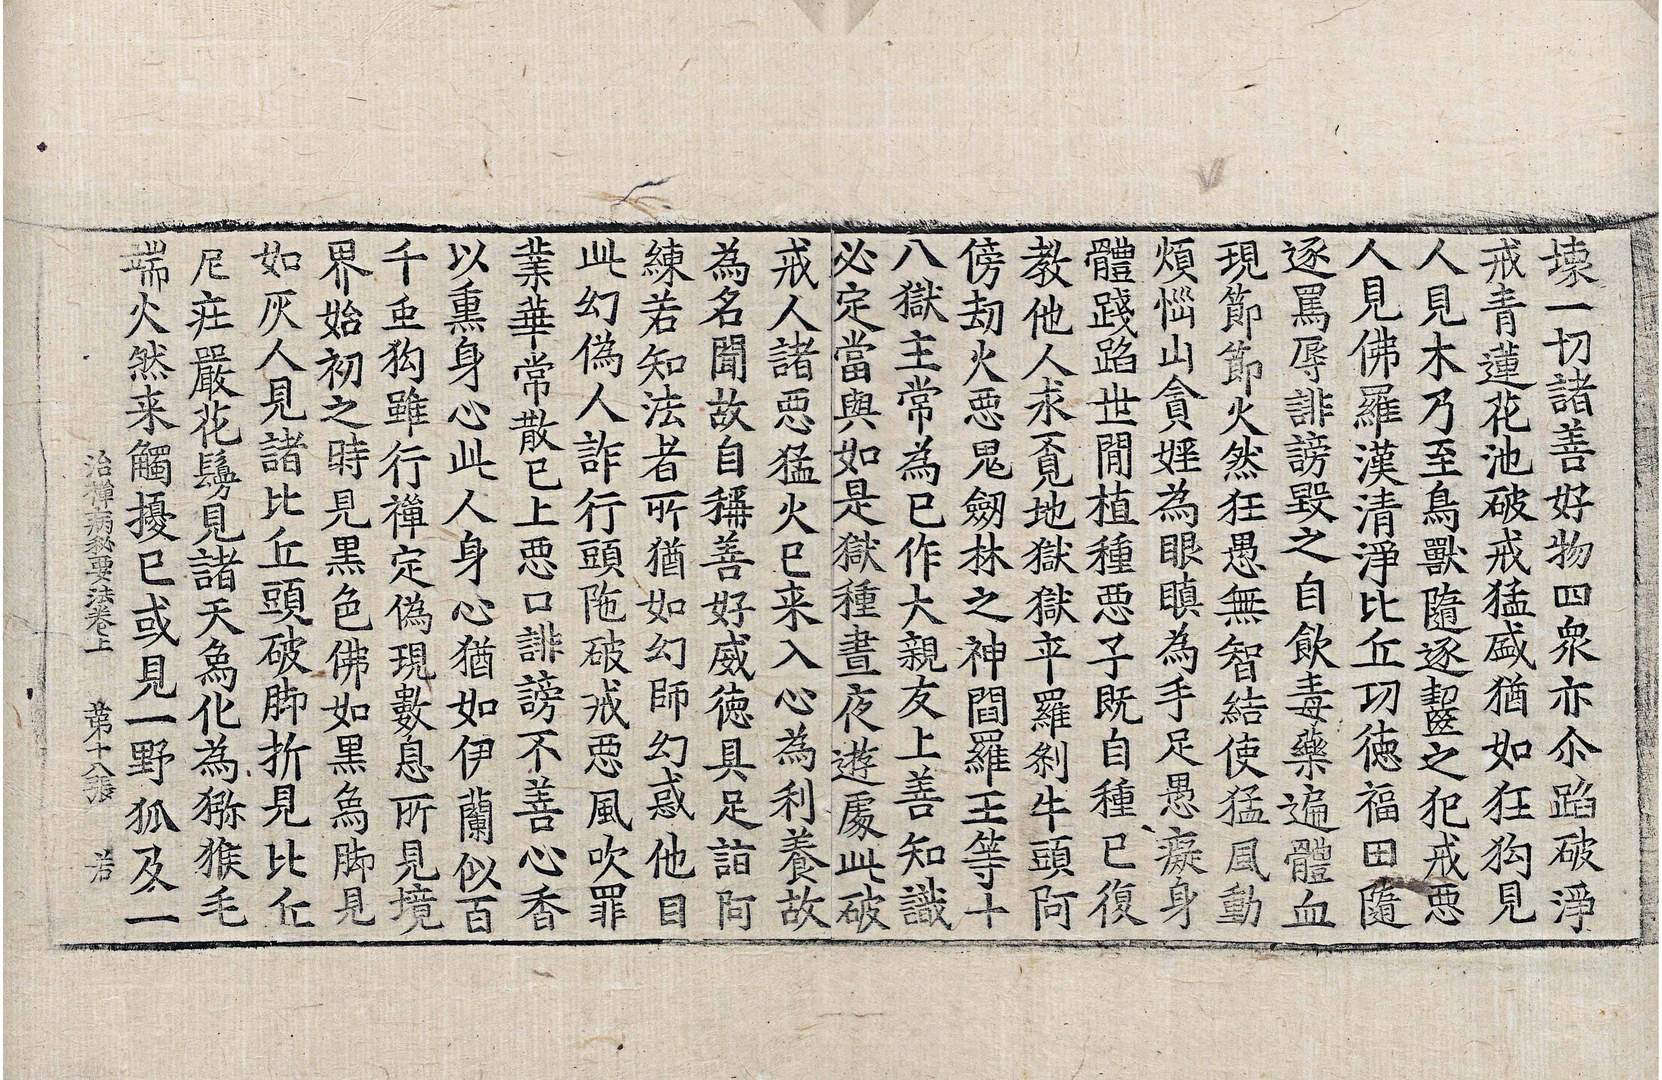 壊一切諸善好物四衆亦尒蹈破淨
戒青蓮花池破戒猛盛猶如狂狗見
人見木乃至鳥獸隨逐齧之犯戒惡
人見佛羅漢清淨比丘功徳福田隨
逐罵辱誹謗毀之自飲毒藥遍體血
現節節火然狂愚無智結使猛風動
煩惱山貪婬為眼瞋為手足愚癡身
體踐蹈世間植種惡子既自種已復
教他人求覔地獄獄卒羅剎牛頭阿
傍劫火惡鬼劒林之神閻羅王等十
八獄主常為已作大親友上善知識
必定當與如是獄種晝夜遊處此破
戒人諸惡猛火已来入心為利養故
為名聞故自稱善好威徳具足詣阿
練若知法者所猶如幻師幻惑他目
此幻偽人詐行頭陁破戒惡風吹罪
業華常散已上惡口誹謗不善心香
以熏身心此人身心猶如伊蘭似百
千重狗雖行禪定偽現數息所見境
界始初之時見黒色佛如黒象脚見
如灰人見諸比丘頭破脚折見比丘
尼莊嚴花鬘見諸天象化為猕猴毛
端火然来觸擾已或見一野狐及一
治禪病秘要法卷上　第十八張　若